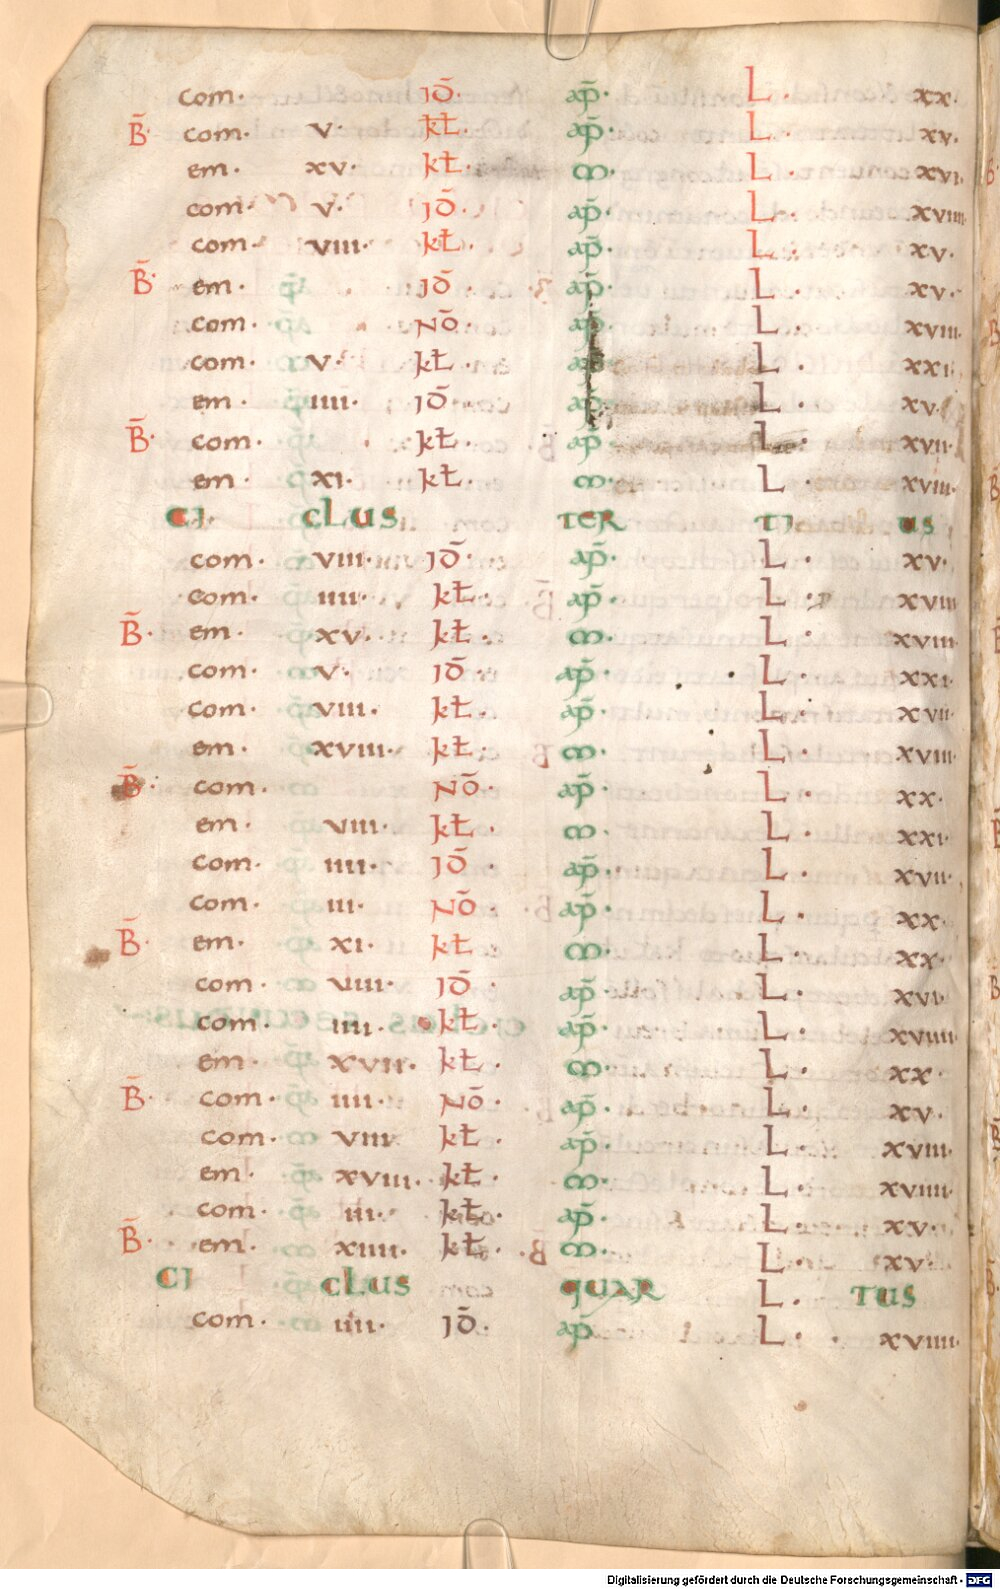 com· ID̄· ap̄· L· xx·
B̄· com· v· kł· ap̄· L· xv·
em· xv· kł· m· L· xvi·
com· v· ID̄· ap̄· L· xviiii
com· viii· kł· ap̄· L· xv·
B̄· em· ID̄· ap̄· L xv·
com· NŌ ap̄ L· xviii
com· v· kł· ap̄ L· xxi·
em· iiii· ID̄· ap̄ L· xv·
B̄· com· kł· ap̄· L· xvii·
em· xi· kł· m· L· xviii·
CI· CLUS TER TI US
com· viii· ID̄· ap̄· L· xv·
com· iiii· kł· ap̄· L· xviii
B̄· em· xv· kł· m· L· xviii·
com· v· ID̄· ap̄· L· xxi·
com· viii· kł· ap̄· L· xvii·
em· xviii· kł· m· L· xviii·
B̄· com· NŌ· ap̄· L· xx·
em· viii· kł· m· L· xxi·
com· iiii· ID̄· ap̄· L· xvii·
com· iii· NŌ ap̄· L· xx·
B̄· em· xi· kł m· L· xx·
com· viiii· ID̄· ap̄ L· xvi·
com· iiii· kł· ap̄· L· xviiii·
em· xvii· kł· m· L· xx·
B̄· com· iiii· NŌ· ap̄· L· xv·
com· viii· kł· ap̄· L· xviii·
em· xviii· kł· m· L· xviiii·
com· iii· kł· ap̄· L· xv·
B̄· em· xiiii· kł· m· L· xv·
CI CLUS QUAR L· TUS
com· iiii· ID̄· ap̄ L· xviiii·
Digitalisierung gefördert durch die Deutsche Forschungsgemeinschaft - DFG